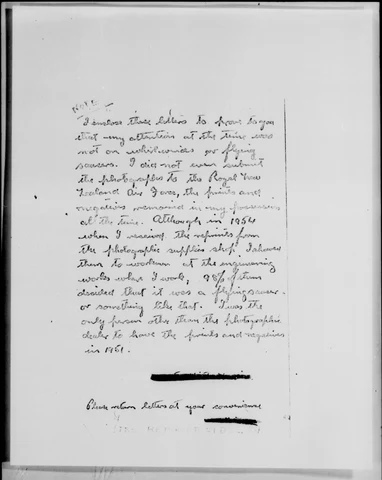 NOTE
I enclose these letters to prove to you
that my attention at the time was
not on whirlwinds or flying
saucers. I did not even submit
the photographs to the Royal New
Zealand Air Force, the prints and
negatives remained in my possession
at the time. Although in 1954
when I received the reprints from
the photographic supplies shop I showed
them to workmen at the engineering
works where I work, 98% of them
decided that it was a flying saucer
or something like that. I was the
only person other than the photographic
dealer to have the prints and negatives
in 1951.
Please return letters at your convenience